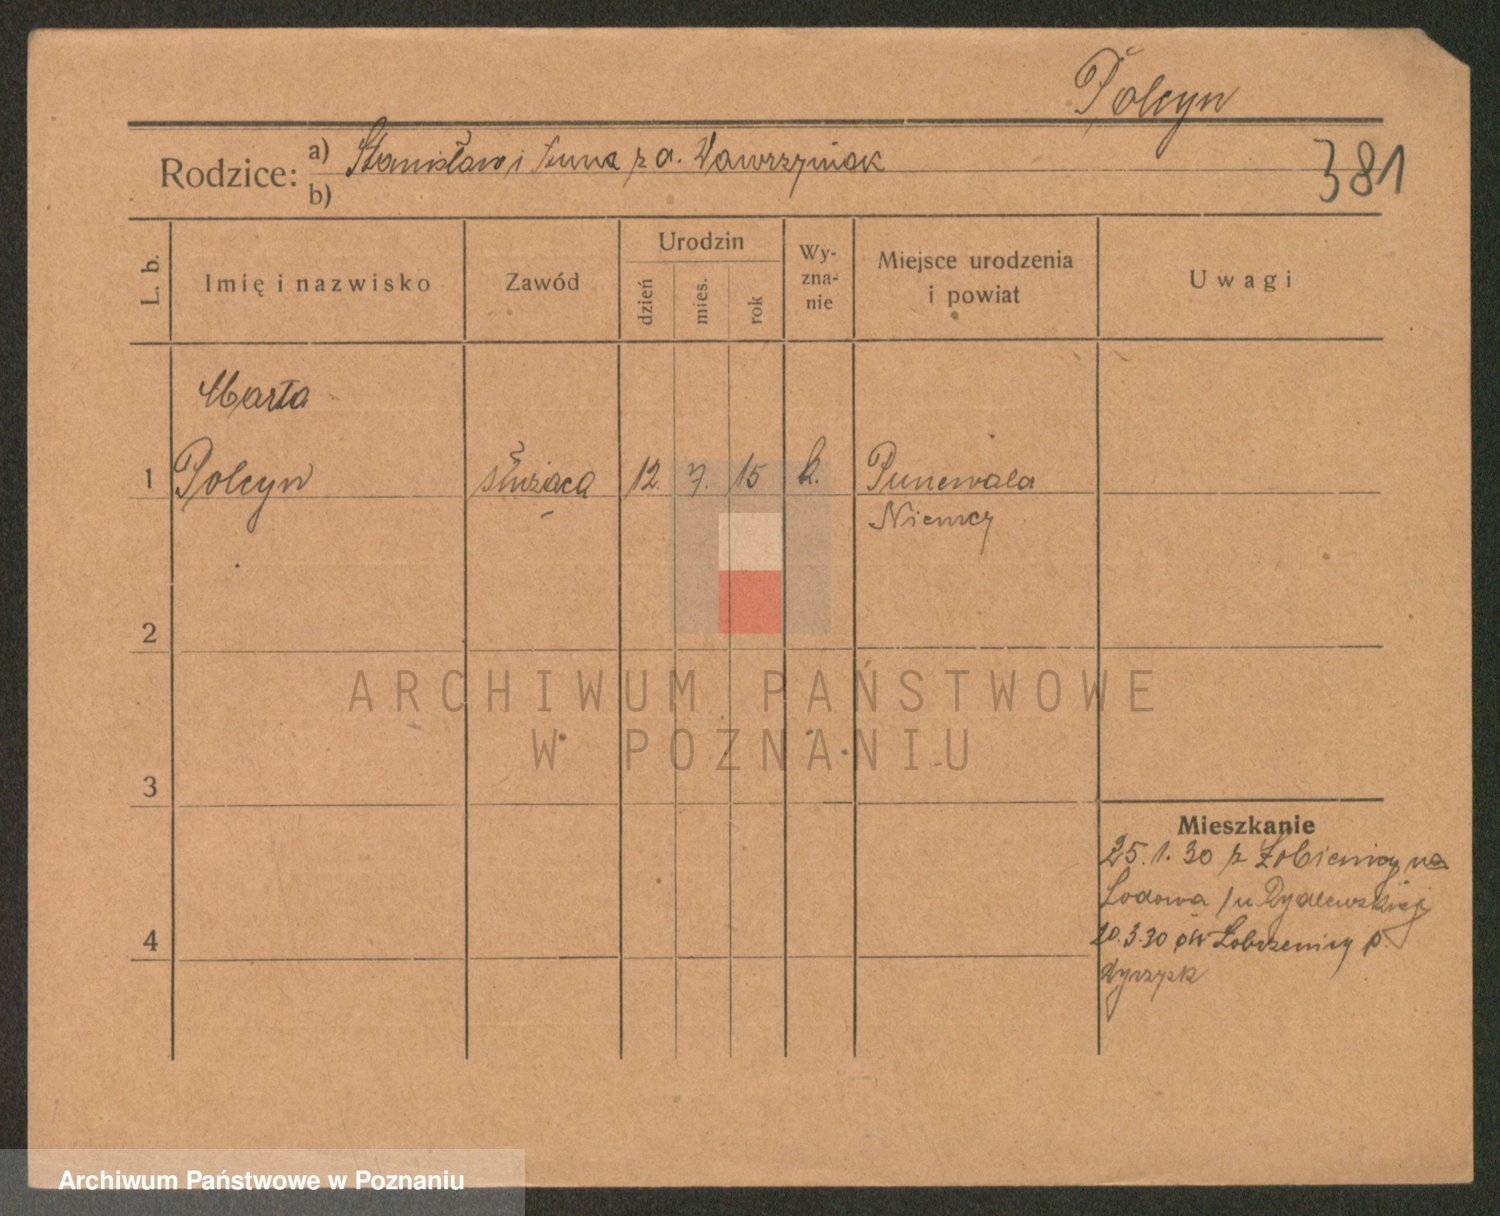 Polcyn
Rodzice: a) Stanisław i Anna z d. Wawrzyniak
b)
381
L. b.
Imię i nazwisko
Zawód
Urodzin
dzień
mies.
rok
Wy-
zna-
nie
Miejsce urodzenia
i powiat
Uwagi
Marta
1 Polcyn służąca 12. 7. 15 k.
Niemcy
2
ARCHIWUM PAŃSTWOWE
W POZNANIU
3
Mieszkanie
25.1.30 z Łobżenicy na
Lodowa /u Rydlewskiej
20.3.30 Łobżenicy p
Wyrzysk
4
Archiwum Państwowe w Poznaniu